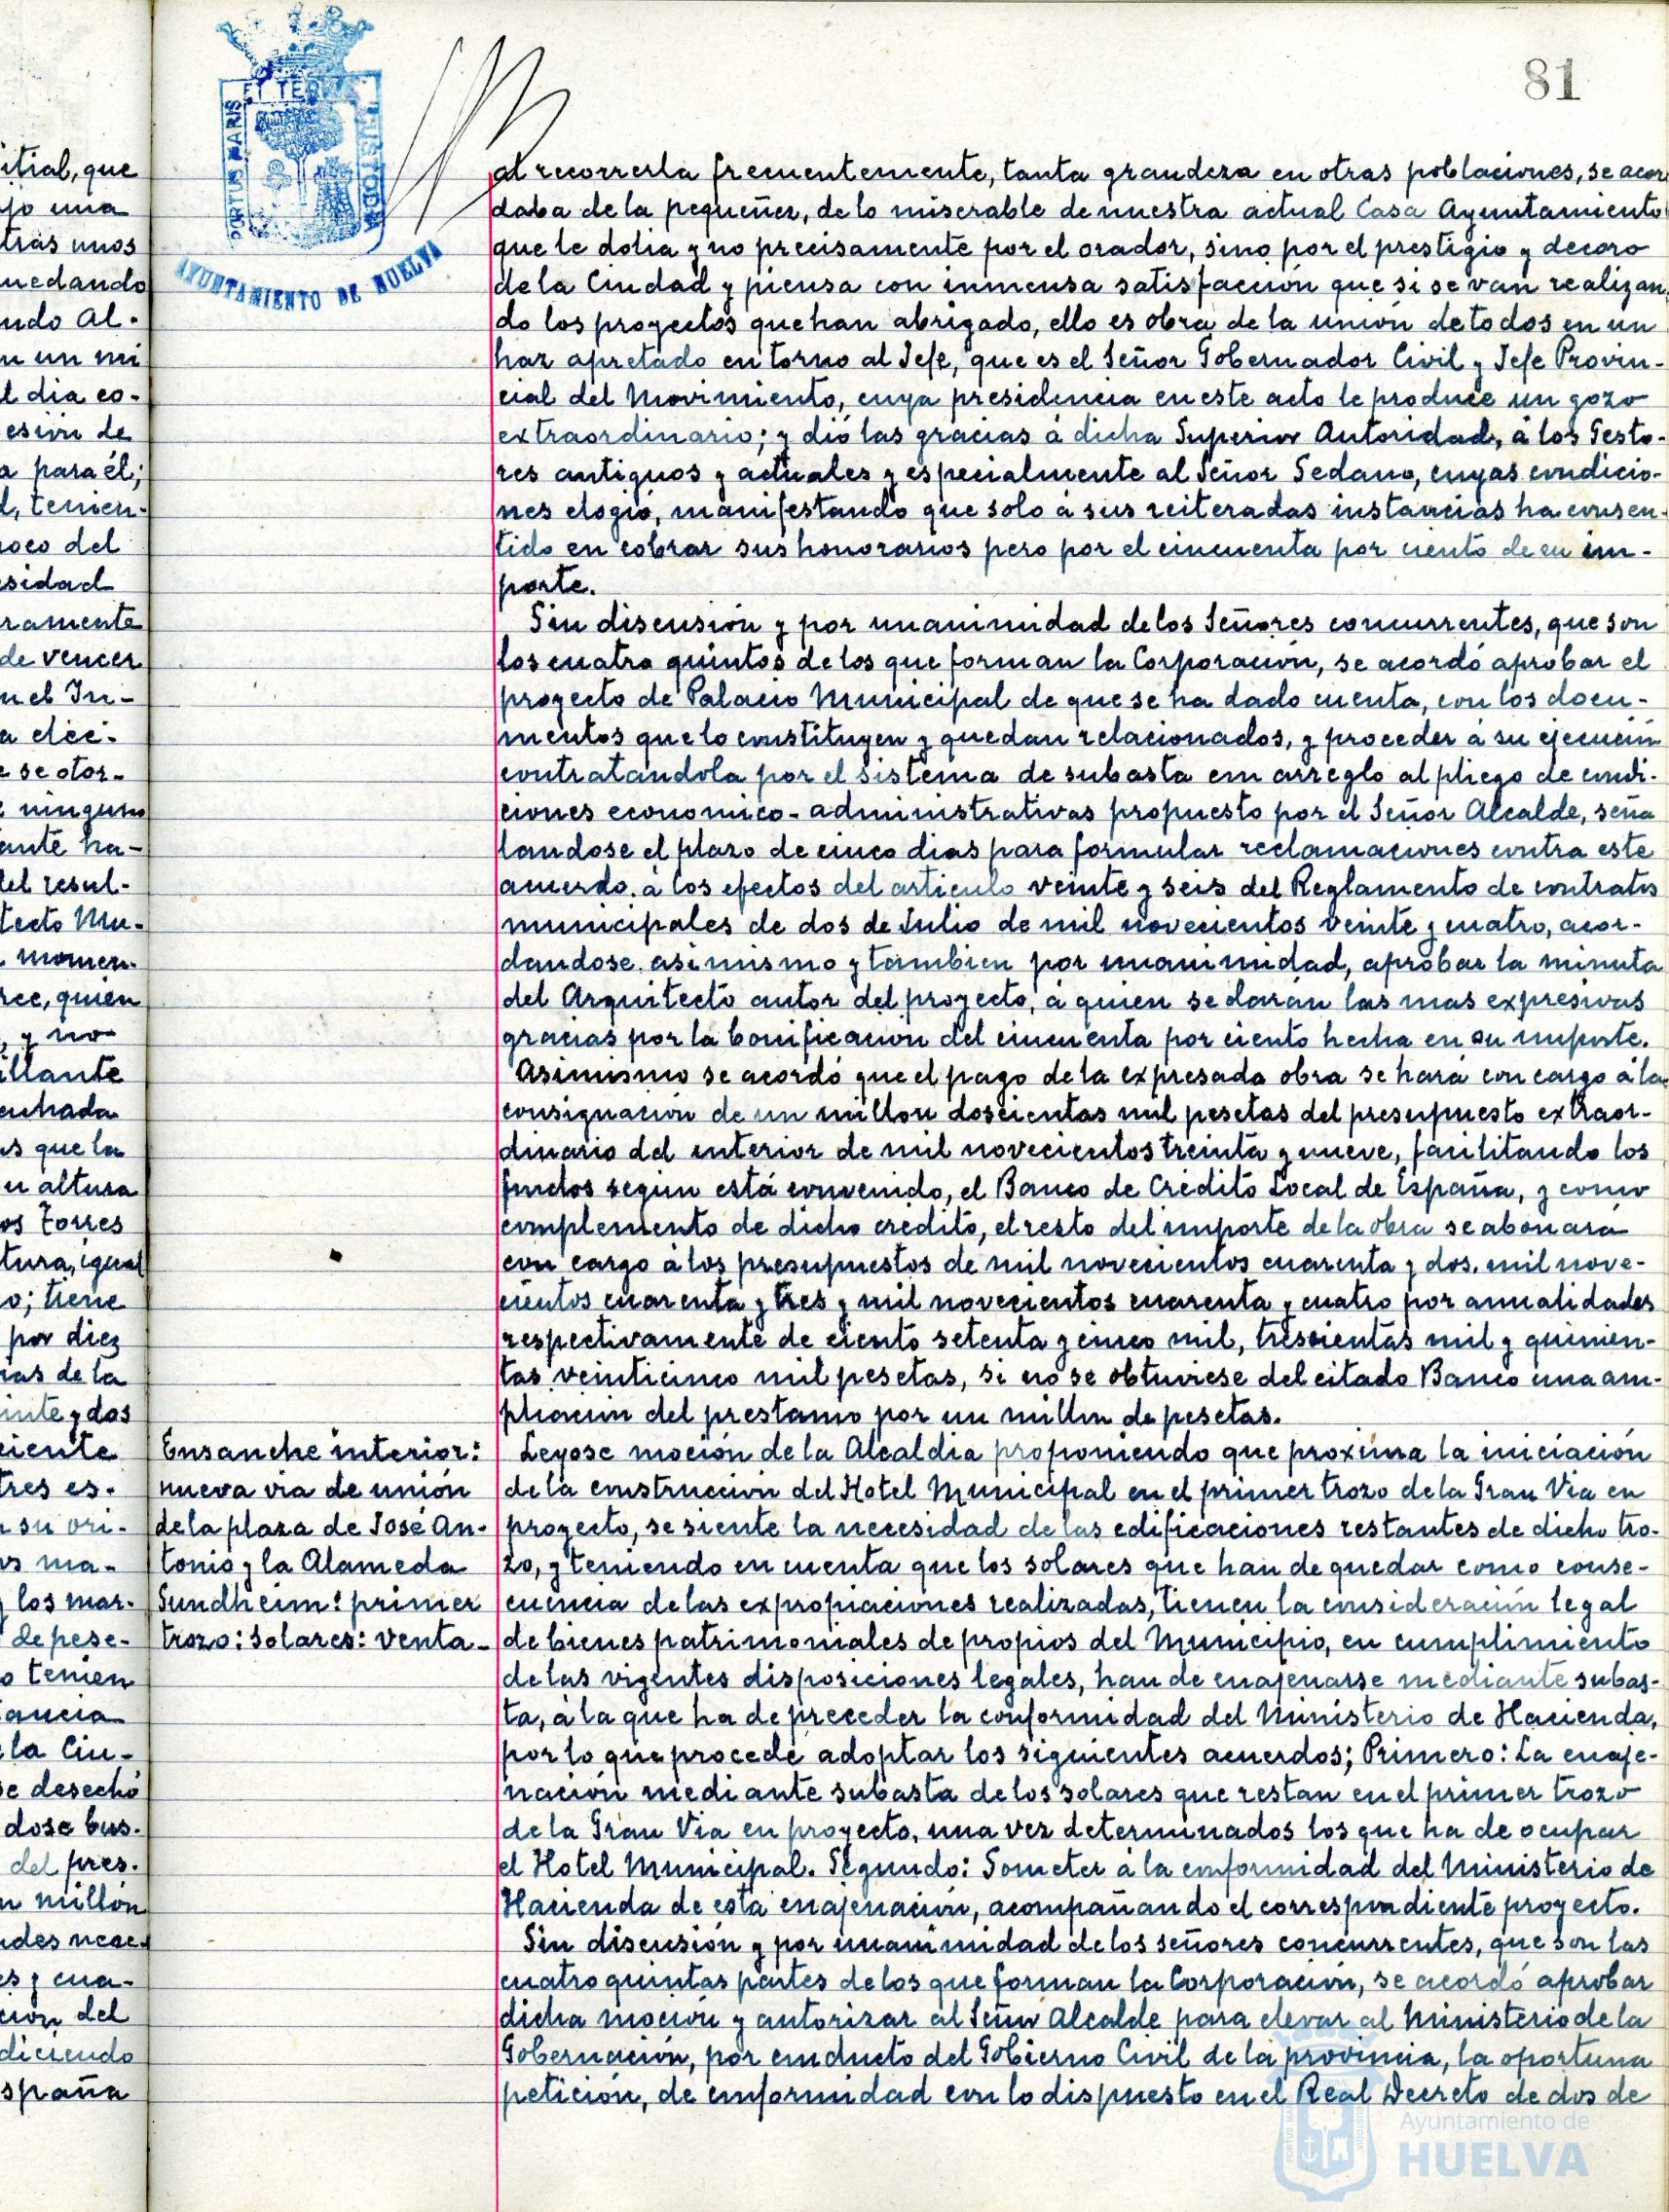 81
PORTUS MARIS ET TERRÆ CUSTODIA
AYUNTAMIENTO DE HUELVA
itial, que
jo una
tras unos
uedando
ndo Al-
n un mi
l dia co-
esión de
a para él;
d, tenien-
roco del
esidad
ramente
de vencer
n el In-
a elec-
e se otor-
e ninguno
ante ha-
del resul-
tecto Mu-
momen-
rce, quien
, y no
illante
cuhada
as que la
u altura
os Torres
tura, igual
o; tiene
por diez
ias de la
inte y dos
ciente
tres es-
n su ori-
os ma-
y los mar-
de pese-
o tenien
ancia
la Ciu-
se desechó
dose bus-
del pres-
n millón
ndes nece-
es y cua-
ción del
diciendo
spaña
al recorrerla frecuentemente, tanta grandeza en otras poblaciones, se acor
daba de la pequeñez, de lo miserable de nuestra actual Casa Ayuntamiento
que le dolia y no precisamente por el orador, sino por el prestigio y decoro
de la Ciudad y piensa con inmensa satisfacción que si se van realizan
do los proyectos que han abrigado, ello es obra de la unión de todos en un
haz apretado en torno al Jefe, que es el Señor Gobernador Civil y Jefe Provin-
cial del Movimiento, cuya presidencia en este acto le produce un gozo
extraordinario; y dió las gracias á dicha Superior Autoridad, á los Gesto-
res antiguos y actuales y especialmente al Señor Sedano, cuyas condicio-
nes elogió, manifestando que solo á sus reiteradas instancias ha consen-
tido en cobrar sus honorarios pero por el cincuenta por ciento de su im-
porte.
Sin discusión y por unanimidad de los Señores concurrentes, que son
los cuatro quintos de los que forman la Corporación, se acordó aprobar el
proyecto de Palacio Municipal de que se ha dado cuenta, con los docu-
mentos que lo constituyen y quedan relacionados, y proceder á su ejecución
contratandola por el sistema de subasta con arreglo al pliego de condi-
ciones economico-administrativas propuesto por el Señor Alcalde, seña
landose el plazo de cinco dias para formular reclamaciones contra este
acuerdo, á los efectos del articulo veinte y seis del Reglamento de contratos
municipales de dos de Julio de mil novecientos veinte y cuatro, acor-
dandose, asimismo y tambien por unanimidad, aprobar la minuta
del Arquitecto autor del proyecto, á quien se darán las mas expresivas
gracias por la bonificación del cincuenta por ciento hecha en su importe.
Asimismo se acordó que el pago de la expresada obra se hará con cargo á la
consignación de un millon doscientas mil pesetas del presupuesto extraor-
dinario del interior de mil novecientos treinta y nueve, facilitando los
fondos según está convenido, el Banco de Credito Local de España, y como
complemento de dicho credito, el resto del importe de la obra se abonará
con cargo á los presupuestos de mil novecientos cuarenta y dos, mil nove-
cientos cuarenta y tres y mil novecientos cuarenta y cuatro por anualidades
respectivamente de ciento setenta y cinco mil, trescientas mil y quinien-
tas veinticinco mil pesetas, si no se obtuviese del citado Banco una am-
pliación del prestamo por un millon de pesetas.
Ensanche interior:
nueva via de unión
de la plaza de José An-
tonio y la Alameda
Sundheim: primer
trozo: Solares: venta-
Leyose moción de la Alcaldia proponiendo que proxima la iniciación
de la construccion del Hotel Municipal en el primer trozo de la Gran Via en
proyecto, se siente la necesidad de las edificaciones restantes de dicho tro-
zo, y teniendo en cuenta que los solares que han de quedar como conse-
cuencia de las expropiaciones realizadas, tienen la consideración legal
de bienes patrimoniales de propios del Municipio, en cumplimiento
de las vigentes disposiciones legales, han de enajenarse mediante subas-
ta, á la que ha de preceder la conformidad del Ministerio de Hacienda,
por lo que procede adoptar los siguientes acuerdos; Primero: La enaje-
nación mediante subasta de los solares que restan en el primer trozo
de la Gran Via en proyecto, una vez determinados los que ha de ocupar
el Hotel Municipal. Segundo: Someter á la conformidad del Ministerio de
Hacienda de esta enajenación, acompañando el correspondiente proyecto.
Sin discusión y por unanimidad de los señores concurrentes, que son las
cuatro quintas partes de los que forman la Corporación, se acordó aprobar
dicha moción y autorizar al Señor Alcalde para elevar al Ministerio de la
Gobernación, por conducto del Gobierno Civil de la provincia, la oportuna
petición, de conformidad con lo dispuesto en el Real Decreto de dos de
Ayuntamiento de
HUELVA